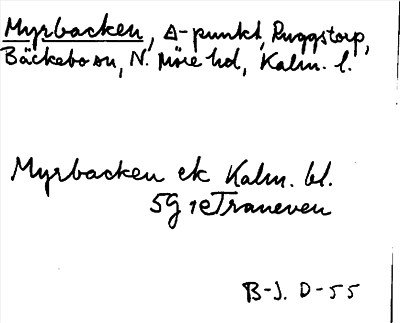 Myrbacken, △-punkt, Ruggstorp,
Bäckebo sn, N. Möre hd, Kalm. l.
Myrbacken ek Kalm. bl.
5G 1e Traneven
B-J. D-55